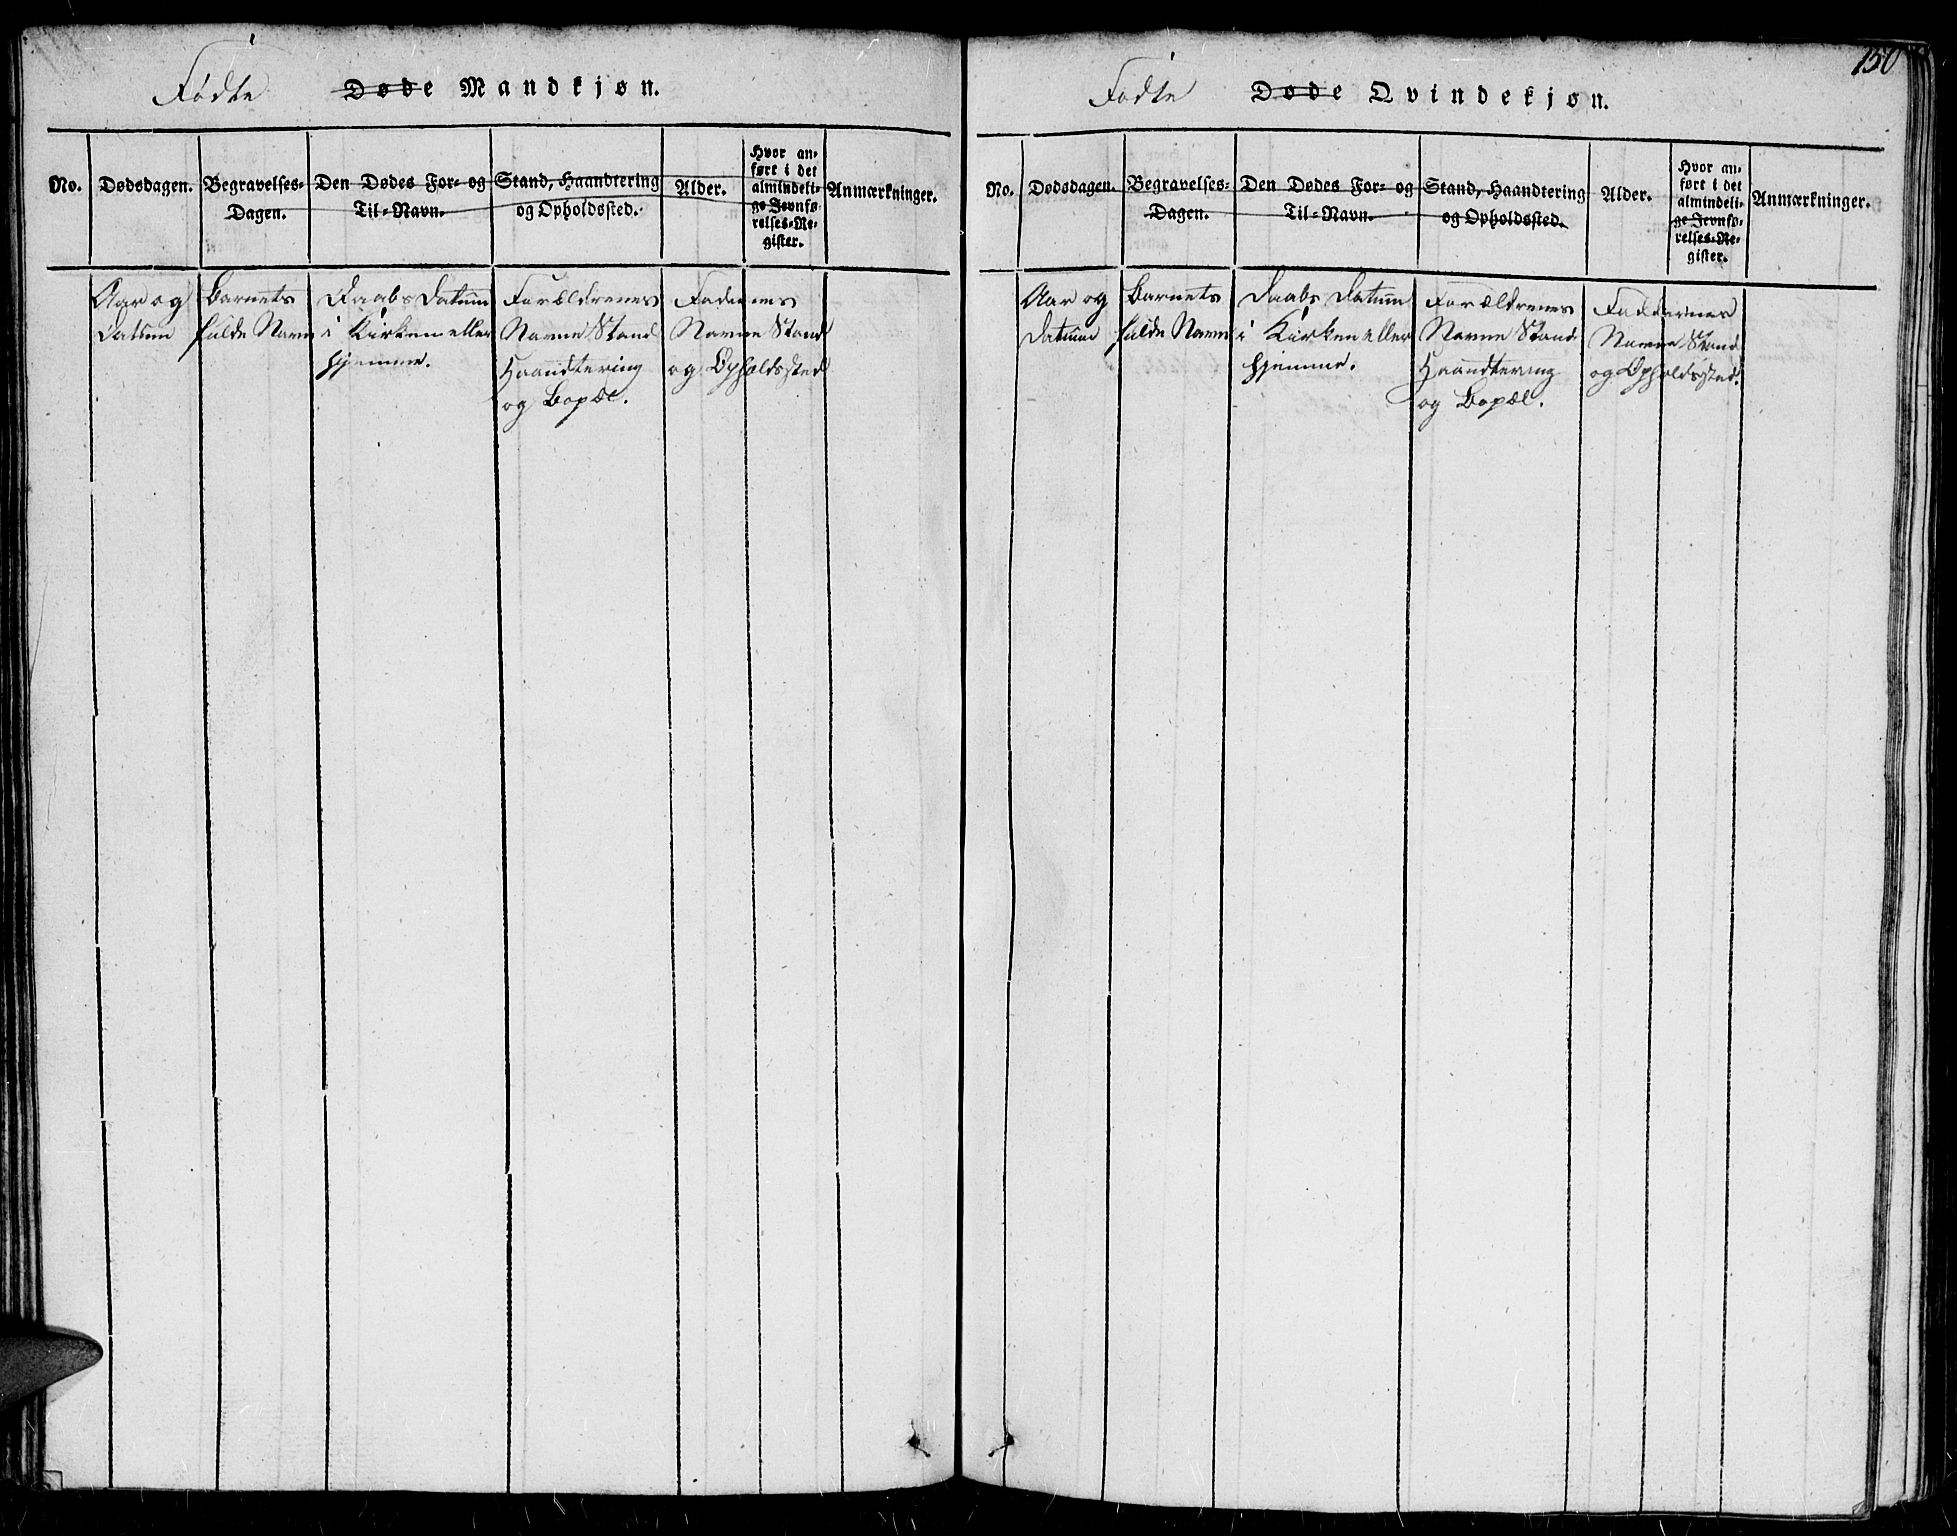 150
Fødte Døde Mandkjøn.
No.
Dødsdagen.
Begravelses-
Dagen.
Den Dødes For- og
Til-Navn.
Stand, Haandtering
og Opholdssted.
Alder.
Hvor an-
ført i det
almindeli-
ge Jevnfø-
relses-Re-
gister.
Anmærkninger.
Aar og
Datum
Barnets
fulde Navn
Daabs Datum
i Kirken eller
hjemme.
Forældrenes
Navne Stand
Haandtering
og Bopæl.
Faddernes
Navne Stand
og Opholdssted
Fødte Døde Qvindekjøn.
No.
Dødsdagen.
Begravelses-
Dagen.
Den Dødes For- og
Til-Navn.
Stand, Haandtering
og Opholdssted.
Alder.
Hvor an-
ført i det
almindeli-
ge Jevnfø-
relses-Re-
gister.
Anmærkninger.
Aar og
Datum
Barnets
fulde Navn
Daabs Datum
i Kirken eller
hjemme.
Forældrenes
Navne Stand
Haandtering
og Bopæl.
Faddernes
Navne Stand
og Opholdssted.